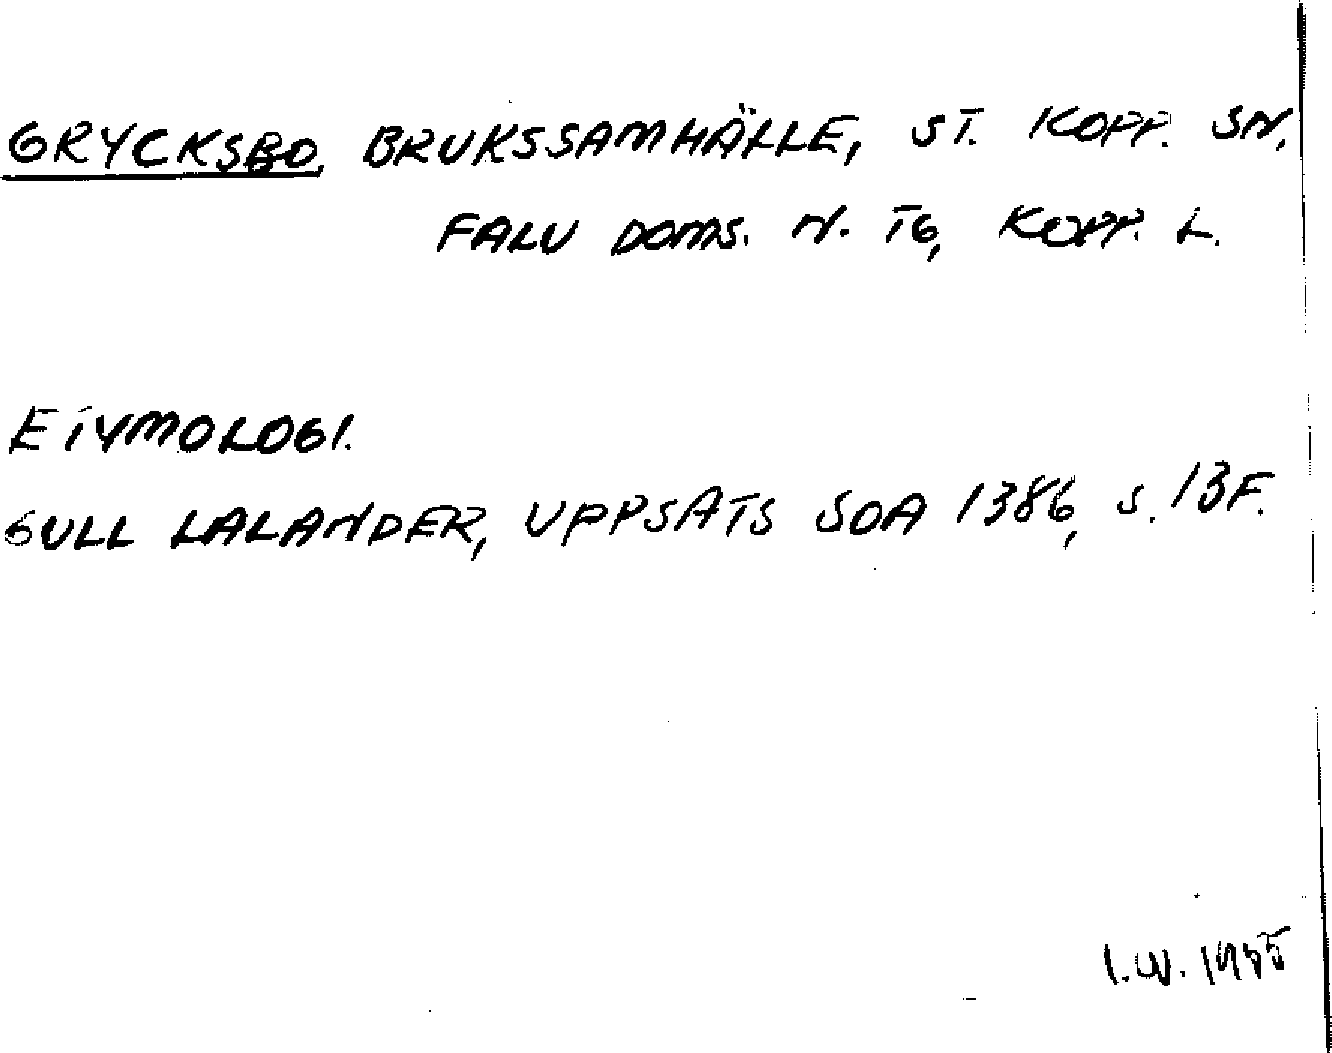 GRYCKSBO, BRUKSSAMHÄLLE, ST. KOPP. SN,
FALU DOMS. N. TG, KOPP. L.
ETYMOLOGI.
GULL LALANDER, UPPSATS SOA 1386, S. 13F.
I.W. 1955